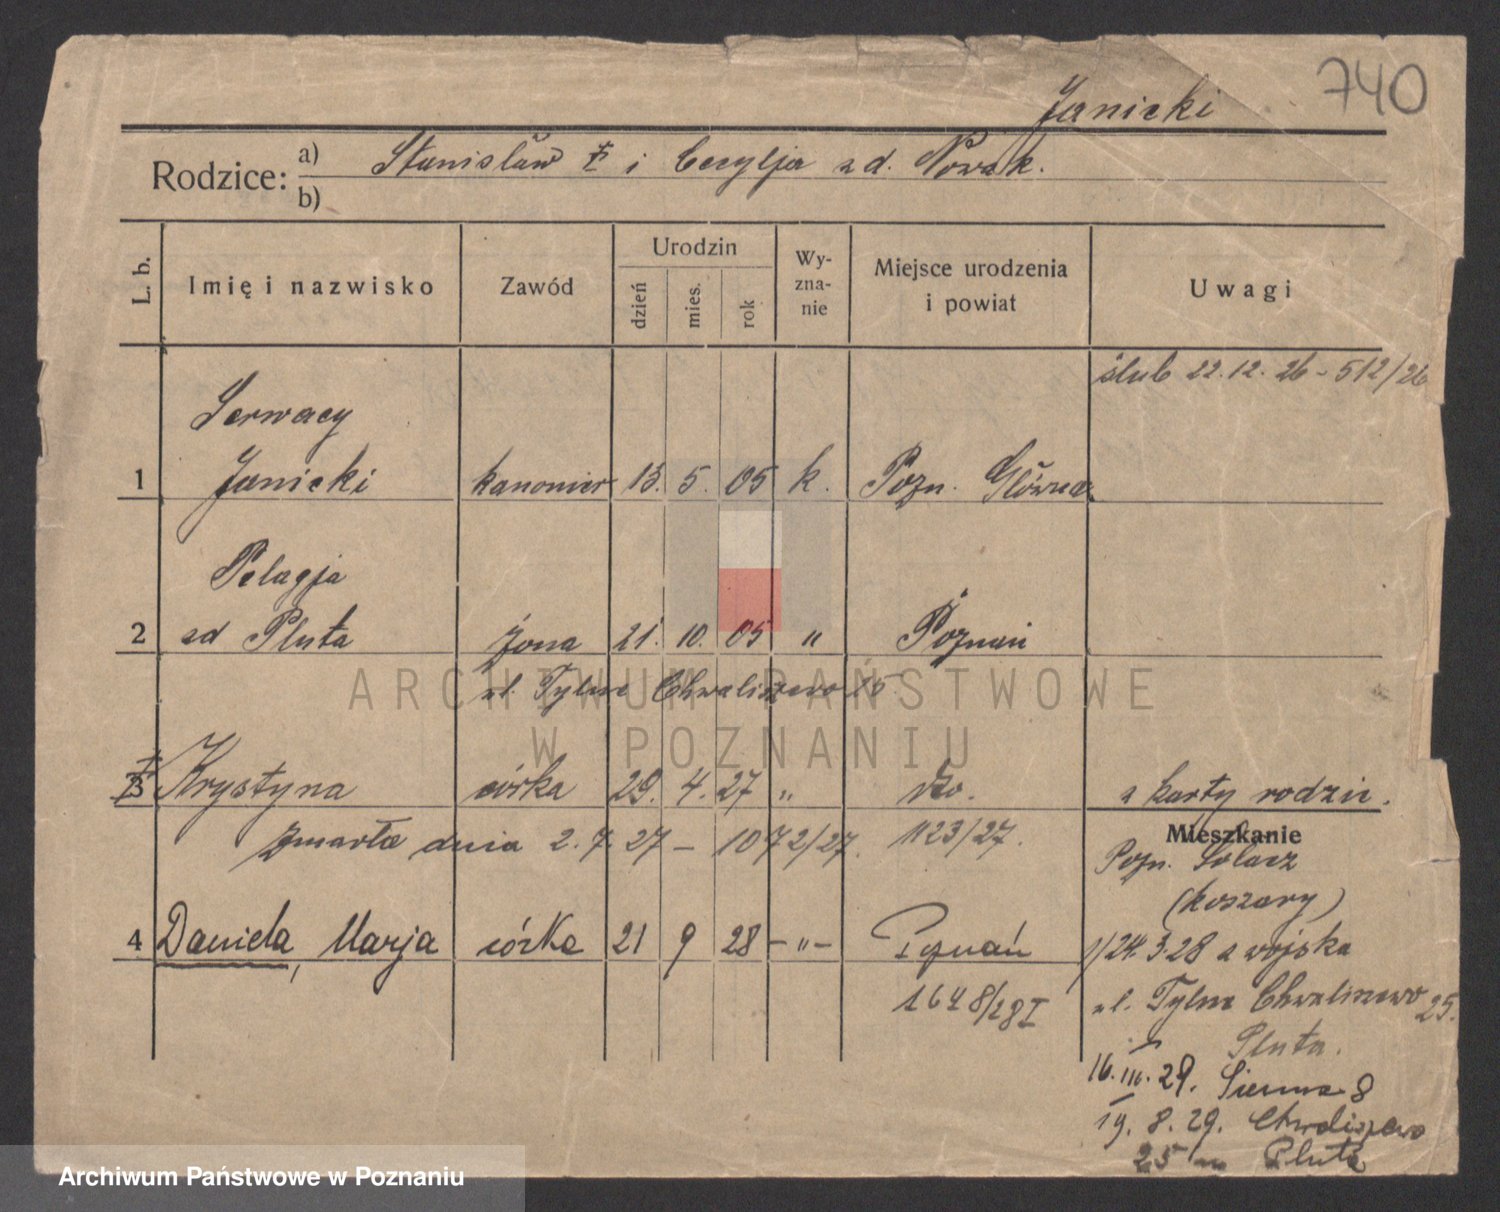 740
Janicki
Rodzice: a) Stanisław ‡ i Cecylja zd. Nowak.
b)
L. b.
Imię i nazwisko
Zawód
Urodzin
dzień
mies.
rok
Wy-
zna-
nie
Miejsce urodzenia
i powiat
Uwagi
ślub 22.12.26 - 512/26
Serwacy
1 Janicki kanonier 13. 5. 05 k. Pozn. Główna
Pelagja
2 zd Pluta żona 21. 10. 05 " Poznań
ul. Tylne Chwaliszewo 25
ARCHIWUM PAŃSTWOWE
W POZNANIU
‡ 3 Krystyna córka 29. 4. 27 " dto. z karty rodzic.
zmarła dnia 2.7.27 - 1072/27. 1123/27.
Mieszkanie
Pozn. Sołacz
(koszary)
4 Daniela, Marja córka 21 9 28 -"- Poznań
1/24.3.28 z wojska
1648/28 I
ul. Tylne Chwaliszewo 25.
Pluta.
16.III.29. Sienna 8
19.8.29. Chwaliszewo
25 Pluta
Archiwum Państwowe w Poznaniu